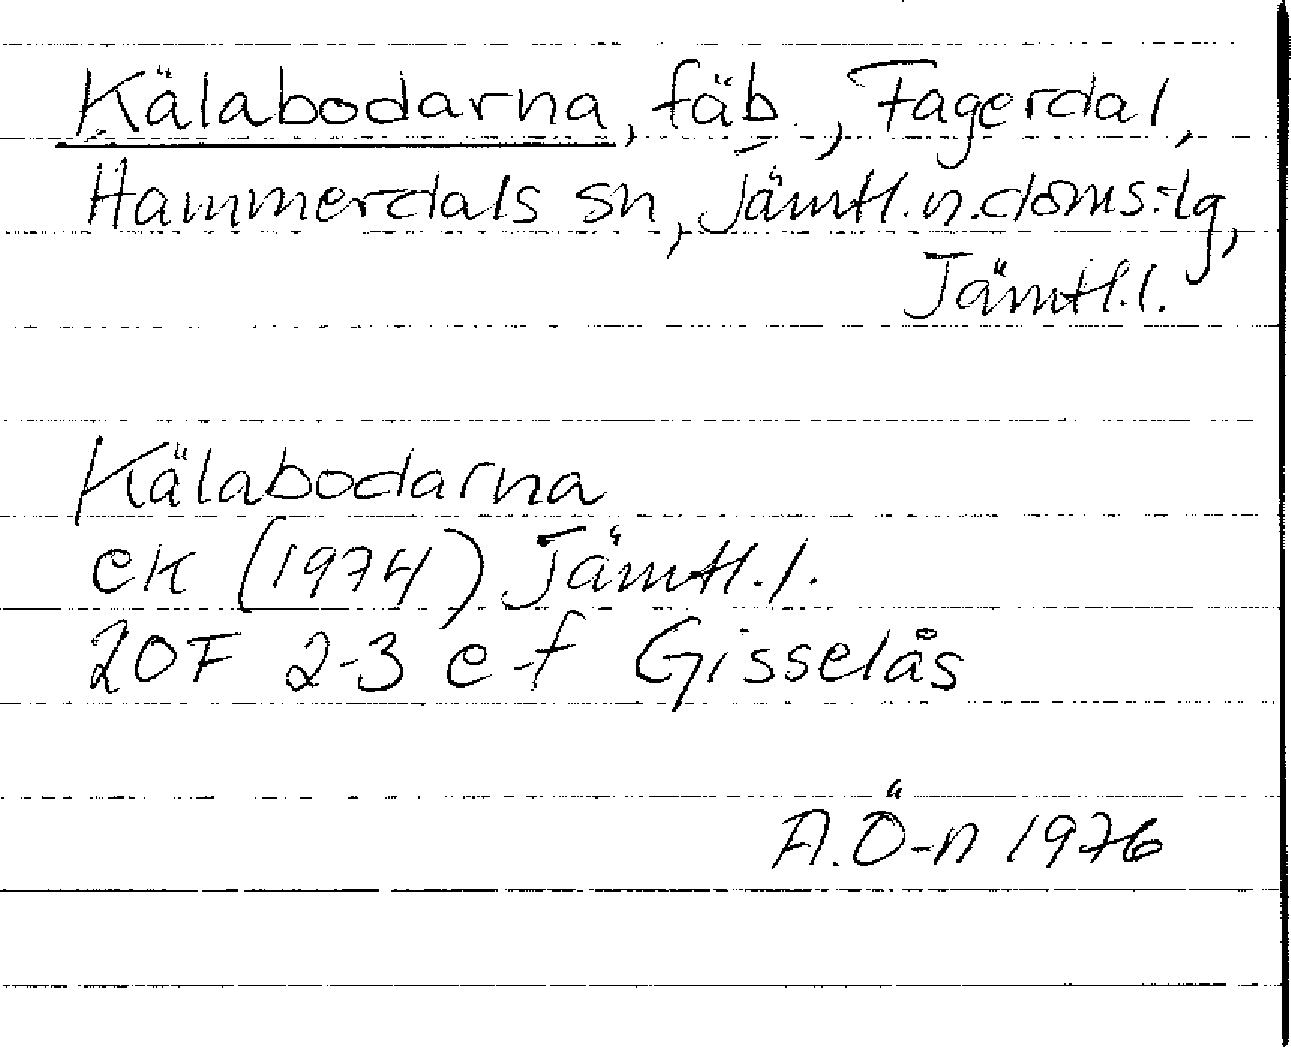 Kälabodarna, fäb., Fagerdal,
Hammerdals sn, Jämtl.n.doms:lg,
Jämtl.l.
Kälabodarna
ek (1974) Jämtl.l.
20F 2-3 e-f Gisselås
A.Ö-n 1976